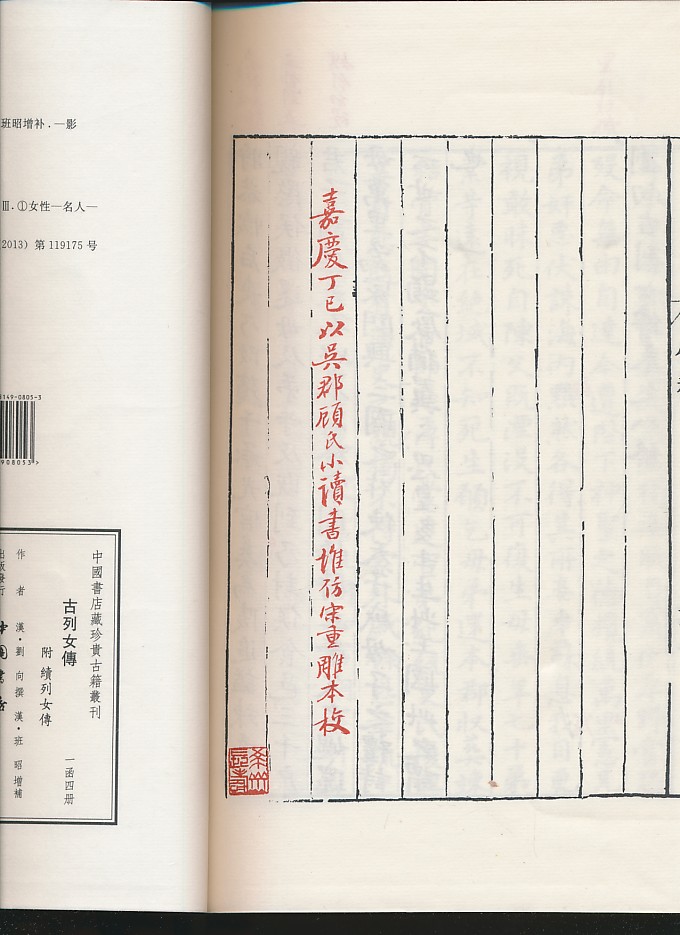 嘉慶丁巳以吳郡顧氏小讀書堆仿宋重雕本校
班昭增补.—影
Ⅲ.①女性—名人—
2013）第 119175 号
5149-0805-3
908053>
中國書店藏珍貴古籍叢刊
古列女傳
附 續列女傳
一函四册
作 者 漢·劉 向撰 漢·班 昭增補
出版發行 中國書店